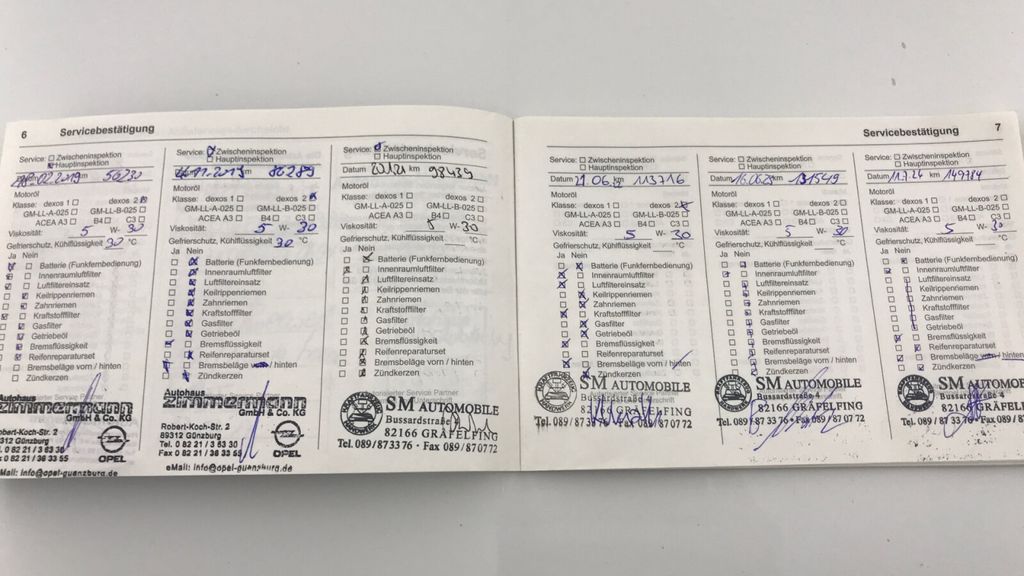 6 Servicebestätigung
Service: Zwischeninspektion
Hauptinspektion
02.2019 56230
Motoröl
Klasse: dexos 1 dexos 2
GM-LL-A-025 GM-LL-B-025
ACEA A3 B4 C3
Viskosität: 5 W- 30
Gefrierschutz, Kühlflüssigkeit 30 °C
Ja Nein
Batterie (Funkfernbedienung)
Innenraumluftfilter
Luftfiltereinsatz
Keilrippenriemen
Zahnriemen
Kraftstofffilter
Gasfilter
Getriebeöl
Bremsflüssigkeit
Reifenreparaturset
Bremsbeläge vorn / hinten
Zündkerzen
Autohaus
zimmermann
GmbH & Co. KG
Robert-Koch-Str. 2
89312 Günzburg
OPEL
eMail: info@opel-guenzburg.de
Service: Zwischeninspektion
Hauptinspektion
11.2019 86289
Motoröl
Klasse: dexos 1 dexos 2
GM-LL-A-025 GM-LL-B-025
ACEA A3 B4 C3
Viskosität: 5 W- 30
Gefrierschutz, Kühlflüssigkeit 30 °C
Ja Nein
Batterie (Funkfernbedienung)
Innenraumluftfilter
Luftfiltereinsatz
Keilrippenriemen
Zahnriemen
Kraftstofffilter
Gasfilter
Getriebeöl
Bremsflüssigkeit
Reifenreparaturset
Bremsbeläge vorn / hinten
Zündkerzen
Autohaus
zimmermann
GmbH & Co. KG
Robert-Koch-Str. 2
89312 Günzburg
Tel. 0 82 21 / 3 63 30
Fax 0 82 21 / 36 33 55
OPEL
eMail: info@opel-guenzburg.de
Service: Zwischeninspektion
Hauptinspektion
Datum km 98439
Motoröl
Klasse: dexos 1 dexos 2
GM-LL-A-025 GM-LL-B-025
ACEA A3 B4 C3
Viskosität: 5 W- 30
Gefrierschutz, Kühlflüssigkeit °C
Ja Nein
Batterie (Funkfernbedienung)
Innenraumluftfilter
Luftfiltereinsatz
Keilrippenriemen
Zahnriemen
Kraftstofffilter
Gasfilter
Getriebeöl
Bremsflüssigkeit
Reifenreparaturset
Bremsbeläge vorn / hinten
Zündkerzen
SM AUTOMOBILE
Bussardstraße 4
82166 GRÄFELFING
Tel. 089/873376 • Fax 089/870772
Servicebestätigung 7
Service: Zwischeninspektion
Hauptinspektion
Datum 21.06. km 113716
Motoröl
Klasse: dexos 1 dexos 2
GM-LL-A-025 GM-LL-B-025
ACEA A3 B4 C3
Viskosität: 5 W- 30
Gefrierschutz, Kühlflüssigkeit °C
Ja Nein
Batterie (Funkfernbedienung)
Innenraumluftfilter
Luftfiltereinsatz
Keilrippenriemen
Zahnriemen
Kraftstofffilter
Gasfilter
Getriebeöl
Bremsflüssigkeit
Reifenreparaturset
Bremsbeläge vorn / hinten
Zündkerzen
SM AUTOMOBILE
Bussardstraße 4
82166 GRÄFELFING
Service: Zwischeninspektion
Hauptinspektion
Datum km 131549
Motoröl
Klasse: dexos 1 dexos 2
GM-LL-A-025 GM-LL-B-025
ACEA A3 B4 C3
Viskosität: 5 W- 30
Gefrierschutz, Kühlflüssigkeit °C
Ja Nein
Batterie (Funkfernbedienung)
Innenraumluftfilter
Luftfiltereinsatz
Keilrippenriemen
Zahnriemen
Kraftstofffilter
Gasfilter
Getriebeöl
Bremsflüssigkeit
Reifenreparaturset
Bremsbeläge vorn / hinten
Zündkerzen
SM AUTOMOBILE
Bussardstraße 4
82166 GRÄFELFING
Tel. 089/873376 • Fax 089/870772
Service: Zwischeninspektion
Hauptinspektion
Datum 11.7.24 km 149784
Motoröl
Klasse: dexos 1 dexos 2
GM-LL-A-025 GM-LL-B-025
ACEA A3 B4 C3
Viskosität: 5 W- 30
Gefrierschutz, Kühlflüssigkeit °C
Ja Nein
Batterie (Funkfernbedienung)
Innenraumluftfilter
Luftfiltereinsatz
Keilrippenriemen
Zahnriemen
Kraftstofffilter
Gasfilter
Getriebeöl
Bremsflüssigkeit
Reifenreparaturset
Bremsbeläge vorn / hinten
Zündkerzen
SM AUTOMOBILE
Bussardstraße 4
82166 GRÄFELFING
Tel. 089/873376 • Fax 089/870772